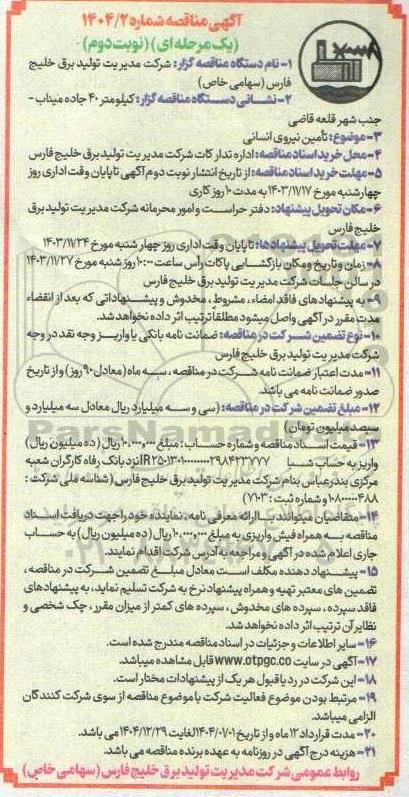 آگهی مناقصه شماره ۱۴۰۴/۲
(یک مرحله ای) (نوبت دوم)
۱- نام دستگاه مناقصه گزار: شرکت مدیریت تولید برق خلیج
فارس (سهامی خاص)
۲- نشانی دستگاه مناقصه گزار: کیلومتر ۴۰ جاده میناب -
جنب شهر قلعه قاضی
۳- موضوع: تأمین نیروی انسانی
۴- محل خرید اسناد مناقصه: اداره تدارکات شرکت مدیریت تولید برق خلیج فارس
۵- مهلت خرید اسناد مناقصه: از تاریخ انتشار نوبت دوم آگهی تا پایان وقت اداری روز
چهارشنبه مورخ ۱۴۰۳/۱۱/۱۷ به مدت ۱۰ روز کاری
۶- مکان تحویل پیشنهاد: دفتر حراست و امور محرمانه شرکت مدیریت تولید برق
خلیج فارس
۷- مهلت تحویل پیشنهادها: تا پایان وقت اداری روز چهار شنبه مورخ ۱۴۰۳/۱۱/۲۴
۸- زمان و تاریخ و مکان بازگشایی پاکات رأس ساعت ۱۰:۰۰ روز شنبه مورخ ۱۴۰۳/۱۱/۲۷
در سالن جلسات شرکت مدیریت تولید برق خلیج فارس
۹- به پیشنهادهای فاقد امضاء، مشروط، مخدوش و پیشنهاداتی که بعد از انقضاء
مدت مقرر در آگهی واصل میشود مطلقا ترتیب اثر داده نخواهد شد.
۱۰- نوع تضمین شرکت در مناقصه: ضمانت نامه بانکی یا واریز وجه نقد در وجه
شرکت مدیریت تولید برق خلیج فارس
۱۱- مدت اعتبار ضمانت نامه شرکت در مناقصه، سه ماه (معادل ۹۰ روز) و از تاریخ
صدور ضمانت نامه می باشد.
۱۲- مبلغ تضمین شرکت در مناقصه: (سی و سه میلیارد ریال معادل سه میلیارد و
سیصد میلیون تومان)
۱۳- قیمت اسناد مناقصه و شماره حساب: مبلغ ۱۰،۰۰۰،۰۰۰ ریال (ده میلیون ریال)
واریز به حساب شبا نزد بانک رفاه کارگران شعبه
مرکزی بندرعباس بنام شرکت مدیریت تولید برق خلیج فارس (شناسه ملی شرکت:
و شماره ثبت: ۷۰۳)
۱۴- متقاضیان میتوانند با ارائه معرفی نامه، نماینده خود را جهت دریافت اسناد
مناقصه به همراه فیش واریزی به مبلغ ۱۰،۰۰۰،۰۰۰ ریال (ده میلیون ریال) به حساب
جاری اعلام شده در آگهی و مراجعه به آدرس شرکت اقدام نمایند.
۱۵- پیشنهاد دهنده مکلف است معادل مبلغ تضمین شرکت در مناقصه،
تضمین های معتبر تهیه و همراه پیشنهاد نرخ به شرکت تسلیم نماید، به پیشنهادهای
فاقد سپرده، سپرده های مخدوش، سپرده های کمتر از میزان مقرر، چک شخصی و
نظایر آن ترتیب اثر داده نخواهد شد.
۱۶- سایر اطلاعات و جزئیات در اسناد مناقصه مندرج شده است.
۱۷- آگهی در سایت www.otpgc.co قابل مشاهده میباشد.
۱۸- این شرکت در رد یا قبول هر یک از پیشنهادات مختار است.
۱۹- مرتبط بودن موضوع فعالیت شرکت با موضوع مناقصه از سوی شرکت کنندگان
الزامی میباشد.
۲۰- مدت قرارداد ۱۲ ماه و از تاریخ ۱۴۰۴/۰۱/۰۱ لغایت ۱۴۰۴/۱۲/۲۹ می باشد.
۲۱- هزینه درج آگهی در روزنامه به عهده برنده مناقصه می باشد.
روابط عمومی شرکت مدیریت تولید برق خلیج فارس (سهامی خاص)